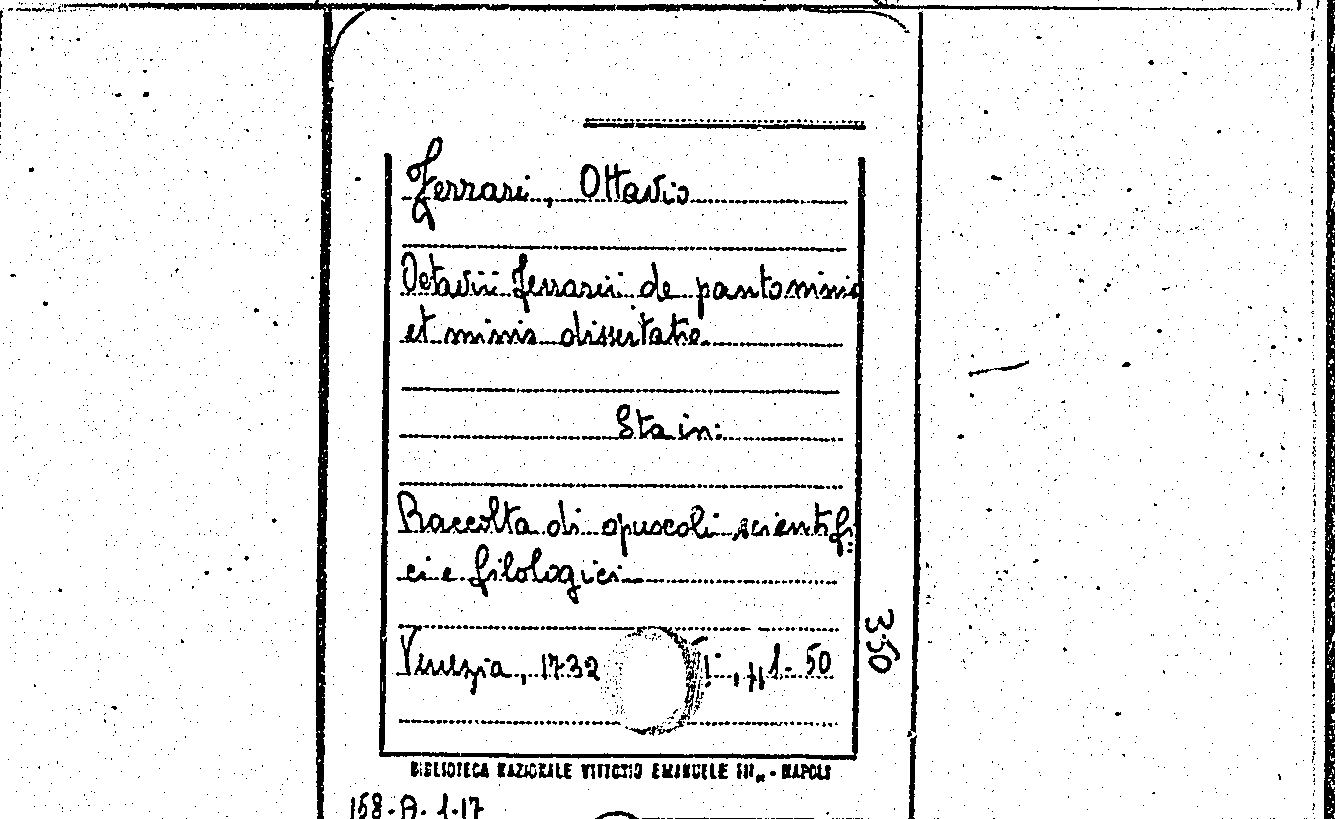 Ferrari, Ottavio
Octavii Ferrarii de pantomimis
et mimis dissertatio
Sta in:
Raccolta di opuscoli scientifi
ci e filologici
Venezia, 1732
1-50
350
BIBLIOTECA NAZIONALE VITTORIO EMANUELE III - NAPOLI
168-A-1-17